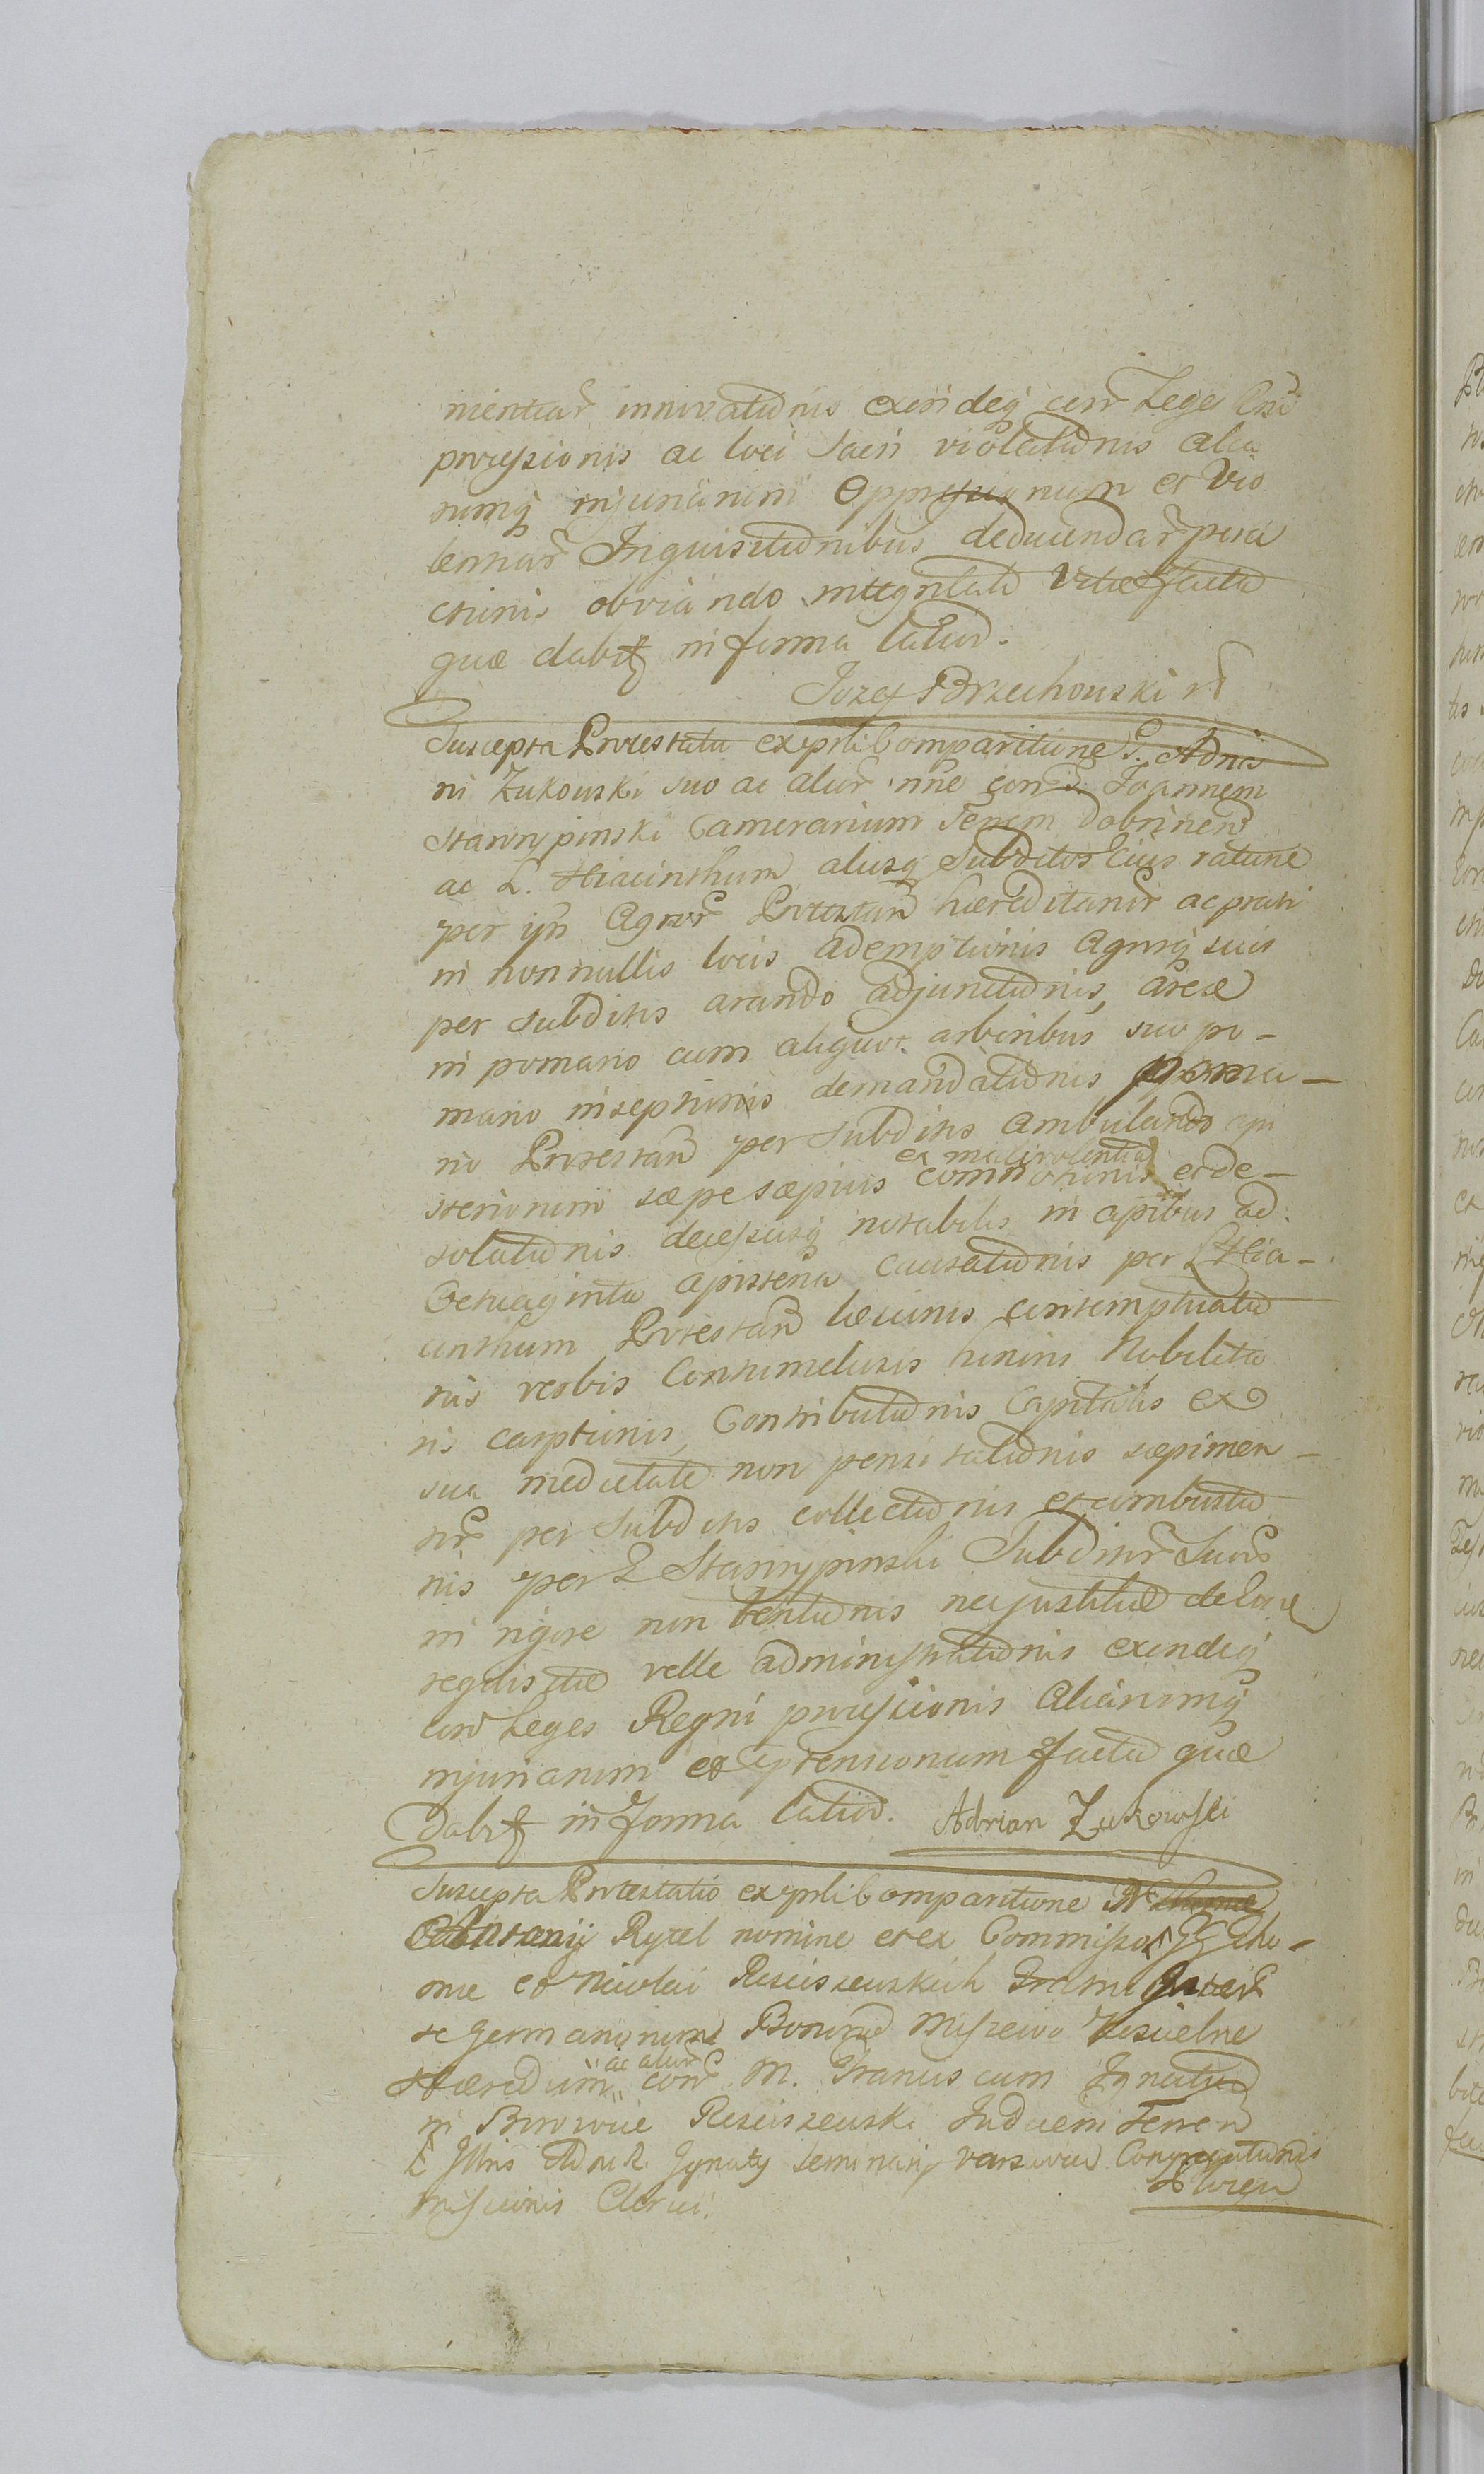 nientiar innovationis exindeq contr Leges Regni
processionis ac loci sacri violationis alia
rumq injuriarum Oppressionum et Vio
lentiar Inquisitionibus deducendar pera
ctionis obviando integritati Vitae facta
quae dabitur in forma latiori.
Jozef Brzechowski
Suscepta Protestatio ex prsti Comparitione G. Adria
ni Zukowski suo ac alior nne contr G. Joannem
Starorypinski Camerarium Terrem Dobrinen
ac L. Hiacinthum aliosq Subditos Eius ratione
per ipsi Agror Protestan haereditarior ac prati
in nonnullis locis ademptionis Agrisq suis
per subditos arando adjunctionis, areae
in pomario cum aliquot arboribus suo po-
mario inseptionis demandationis poma-
rio Protestan per subditos ambulando api
steriorum saepe saepius ex malivolentia commotionis et de-
solationis decessusq notabilis in apibus ad
Octuaginta apisteria causationis per L Hia-
cinthum Protestan laesionis contemptuatio
nis verbis Contumeliosis honoris Nobilita
ris carptionis, Contributionis Capitalis ex
sua medietate non pensitationis sepimen-
tor per subditos collectionis et combustio
nis per G Starorypinski Subditor Suor
in rigore non tentionis nec justitiae de loco
requisitae velle administrationis exindeq
contr Leges Regni processionis Aliarumq
injuriarum et praetensionum facta quae
Dabitur in forma latiori. Adrian Zukowski
Suscepta Protestatio ex prsti Comparitione
Rytel nomine et ex Commisso GG Tho-
mae et Nicolai Rosciszewskich Fratrum inter
se Germanorum Bonorum Miszewo Koscielne
Haeredum ac alior contr M. Franciscum Ignatium
in Borowice Rosciszewski Judicem Terren
Illris Adm R. Ignaty Seminarij Varsavien Congregationis
Missionis Clerici.